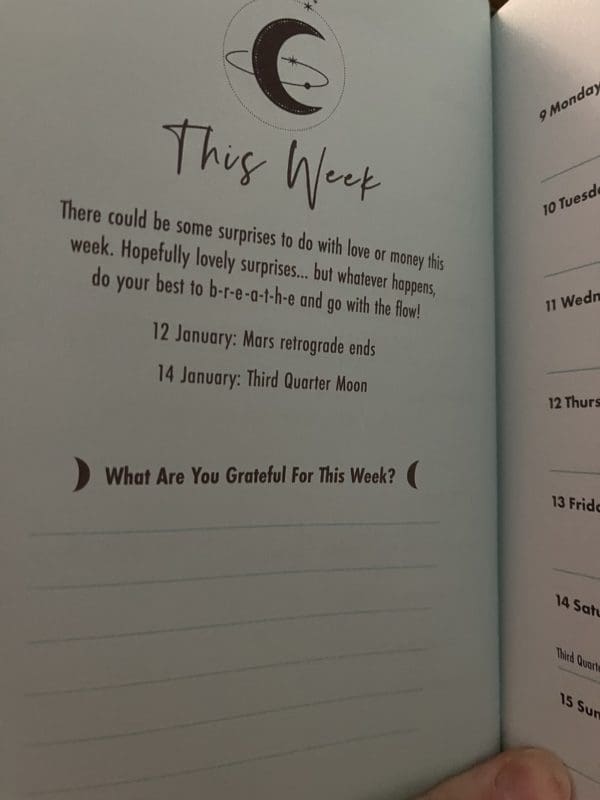 This Week
There could be some surprises to do with love or money this
week. Hopefully lovely surprises... but whatever happens,
do your best to b-r-e-a-t-h-e and go with the flow!
12 January: Mars retrograde ends
14 January: Third Quarter Moon
What Are You Grateful For This Week?
9 Monday
10 Tuesd
11 Wedn
12 Thurs
13 Frid
14 Satu
Third Quart
15 Sun